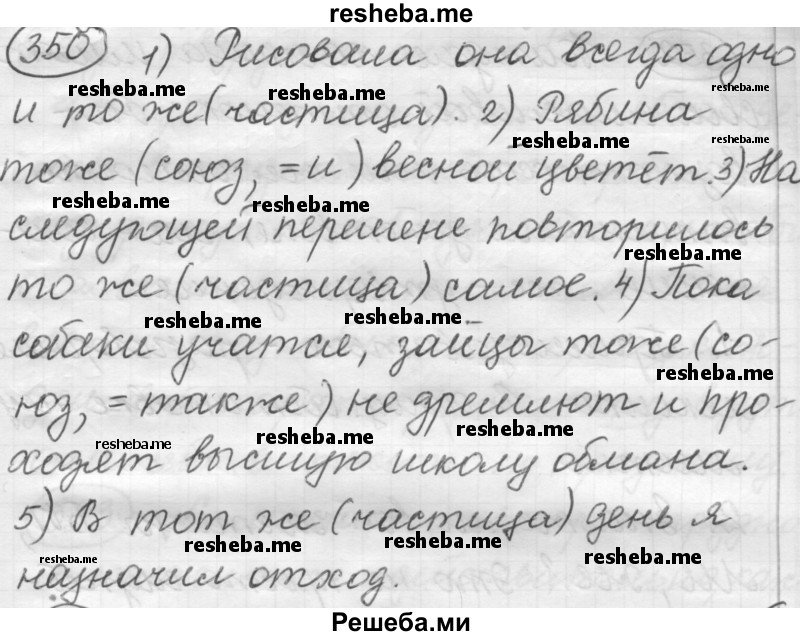 resheba.me
350 1) Рисовала она всегда одно
resheba.me resheba.me resheba.me
и то же (частица). 2) Рябина
resheba.me resheba.me
тоже (союз, = и) весной цветёт. 3) На
resheba.me resheba.me
следующей перемене повторилось
resheba.me
то же (частица) самое. 4) Пока
resheba.me resheba.me
собаки учатся, зайцы тоже (со-
resheba.me
юз, = также) не дремлют и про-
resheba.me resheba.me resheba.me
ходят высшую школу обмана.
5) В тот же (частица) день я
resheba.me resheba.me resheba.me resheba.me
назначил отход.
Решеба.ми